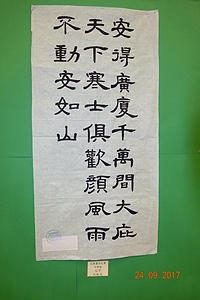 安得廣廈千萬間大庇
天下寒士俱歡顏風雨
不動安如山
24.09.2017